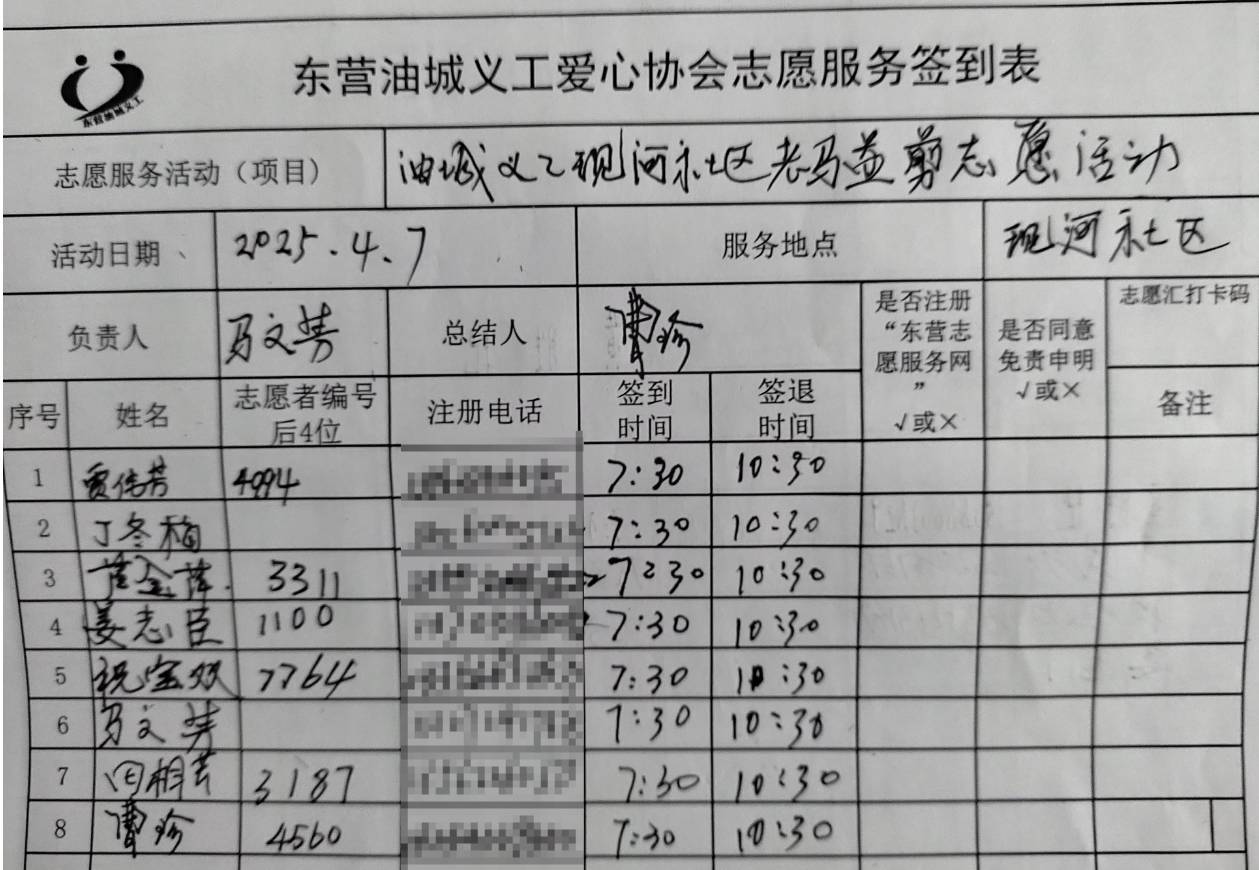 东营油城义工
东营油城义工爱心协会志愿服务签到表
志愿服务活动（项目） 油城义工现河社区老马益剪志愿活动
活动日期 2025.4.7 服务地点 现河社区
负责人 马文芳 总结人 曹珍 是否注册“东营志愿服务网”√或× 是否同意免责申明√或× 志愿汇打卡码
序号 姓名 志愿者编号后4位 注册电话 签到时间 签退时间 备注
1 贾传芳 4094 7:30 10:30
2 丁冬梅 7:30 10:30
3 3311 7:30 10:30
4 姜志臣 1100 7:30 10:30
5 祝宝双 7764 7:30 10:30
6 马文芳 7:30 10:30
7 3187 7:30 10:30
8 曹珍 4560 7:30 10:30